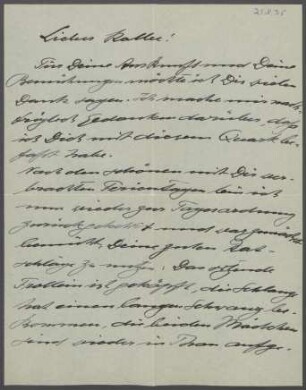 21.8.35
Lieber Kolbe!
Für Deine Auskunft und Deine
Bemühungen möchte ich Dir vielen
Dank sagen. Ich mache mir nach-
träglich Gedanken darüber, daß
ich Dich mit diesem Quark be-
faßt habe.
Nach den schönen mit Dir ver-
brachten Ferientagen bin ich
nun wieder zur Tagesordnung
zurückgekehrt und
bemüht, Deine guten Rat-
schläge zu nutzen. Das
ist geköpft, die Schlange
hat einen langen Schwanz be-
kommen, die beiden Mädchen
sind wieder in Thon aufge-